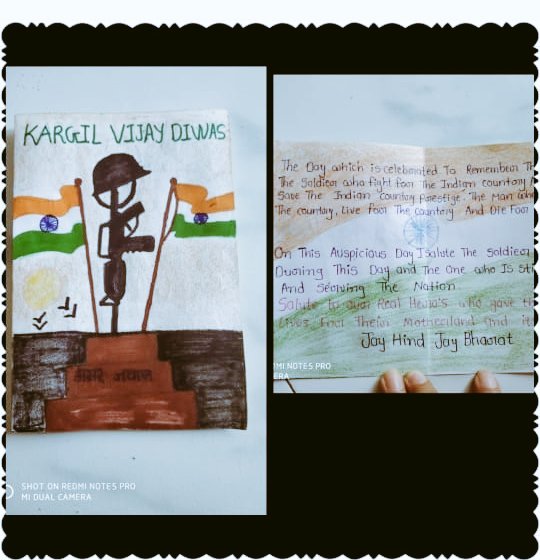 KARGIL VIJAY DIWAS
अमर जवान
SHOT ON REDMI NOTE5 PRO
MI DUAL CAMERA
The Day which is celebrated To Remember Th
The Soldier who fight For The Indian country
Save The Indian Country Prestige. The Man who
The country, Live For The Country And Die For
On This Auspicious Day I Salute The Soldier
During This Day and The One who Is St
And Serving The Nation
Salute to our Real Hero's who gave t
Lives For Their Motherland and it
Jay Hind Jay Bharat
MI NOTE5 PRO
ERA